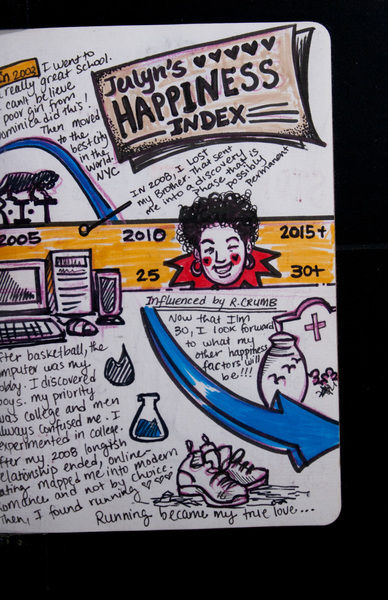 Julyn's
HAPPINESS
INDEX
in 2002 I went to
a really great school.
I can't believe
a poor girl from
Dominica did this!
Then moved
to the
best city
in the
world:
NYC
IN 2008 I LOST
my Brother. That sent
me into a discovery
phase that is
possibly
permanent
2005 2010 2015+
25 30+
Influenced by R. CRUMB
Now that I'm
30, I look forward
to what my
other happiness
factors will
be!!!
After basketball, the
computer was my
hobby. I discovered
boys. my priority
was college and men
always confused me. I
experimented in college.
After my 2008 longish
relationship ended, online
dating mapped me into modern
romance and not by choice.
Then, I found running
Running became my true love...